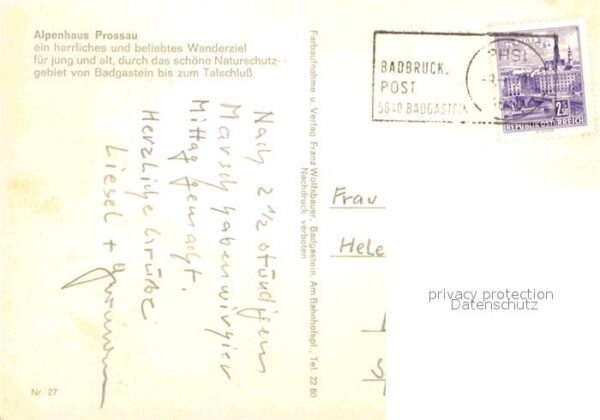 Alpenhaus Prossau
ein herrliches und beliebtes Wanderziel
für jung und alt, durch das schöne Naturschutz-
gebiet von Badgastein bis zum Talschluß
Nach 2 1/2 stündigem
Marsch haben wir hier
Mittag gemacht.
Herzliche Grüße
Liesel +
Nr. 27
Farbaufnahme u. Verlag Franz Wolfsbauer, Badgastein, Am Bahnhofspl., Tel. 22 80
Nachdruck verboten
BADBRUCK,
POST
5640 BADGASTEIN
2
REPUBLIK ÖSTERREICH
Frau
Hele
privacy protection
Datenschutz